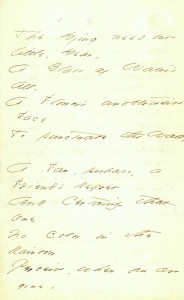 The dying need but
little, Dear,
A Glass of Water's
All,
A Flower's unobtrusive
Face
To punctuate the Wall,
A Fan, perhaps, a
Friend's Regret
And Certainty that
one
No color in the
Rainbow
Perceive, when you are
gone.